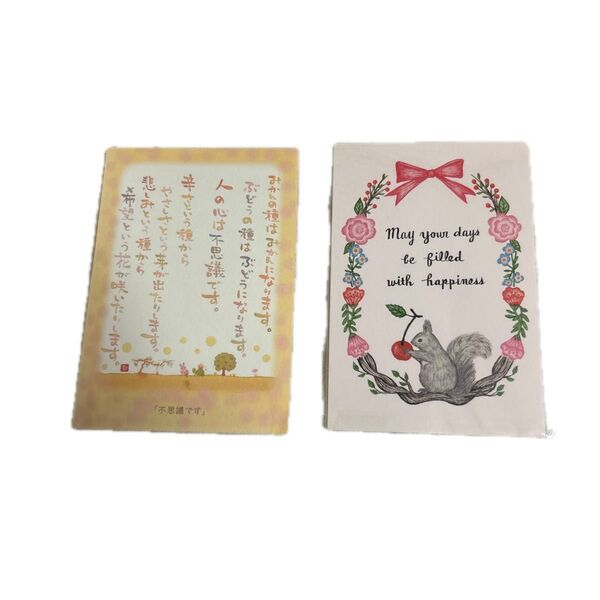 みかんの種はみかんになります。
ぶどうの種はぶどうになります。
人の心は不思議です。
辛さという種から
やさしさという芽が出たりします。
悲しみという種から
希望という花が咲いたりします。
「不思議です」
May your days
be filled
with happiness